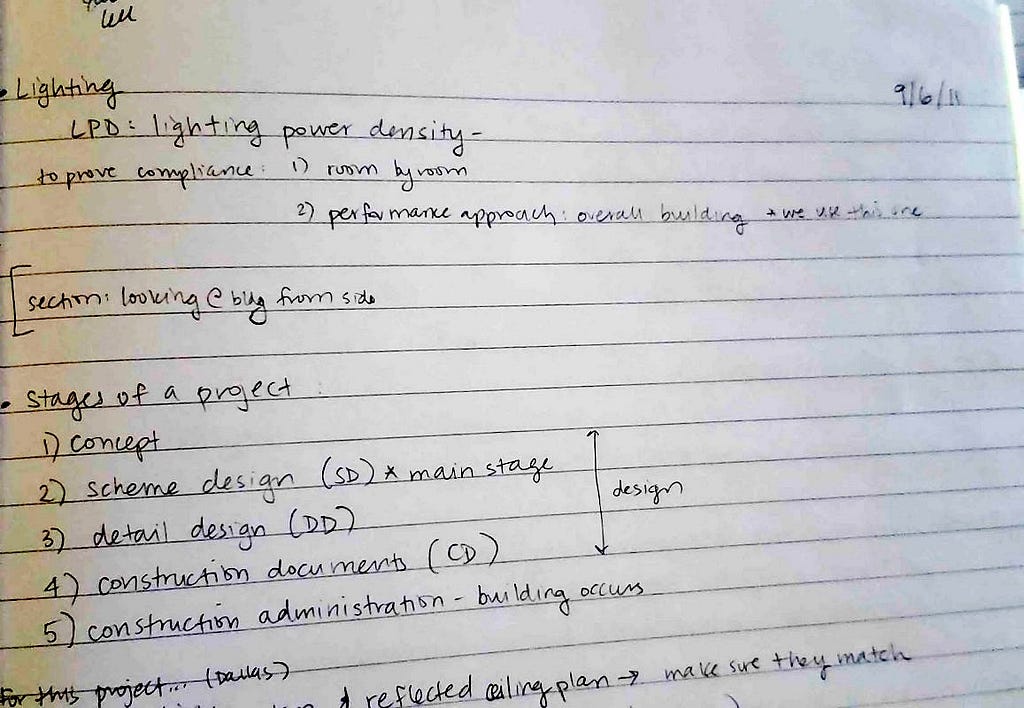 • Lighting
9/6/11
LPD: lighting power density -
to prove compliance: 1) room by room
2) performance approach: overall building * we use this one
section: looking @ bldg from side
• Stages of a project
1) concept
2) scheme design (SD) * main stage
design
3) detail design (DD)
4) construction documents (CD)
5) construction administration - building occurs
For this project... (Dallas)
reflected ceiling plan → make sure they match